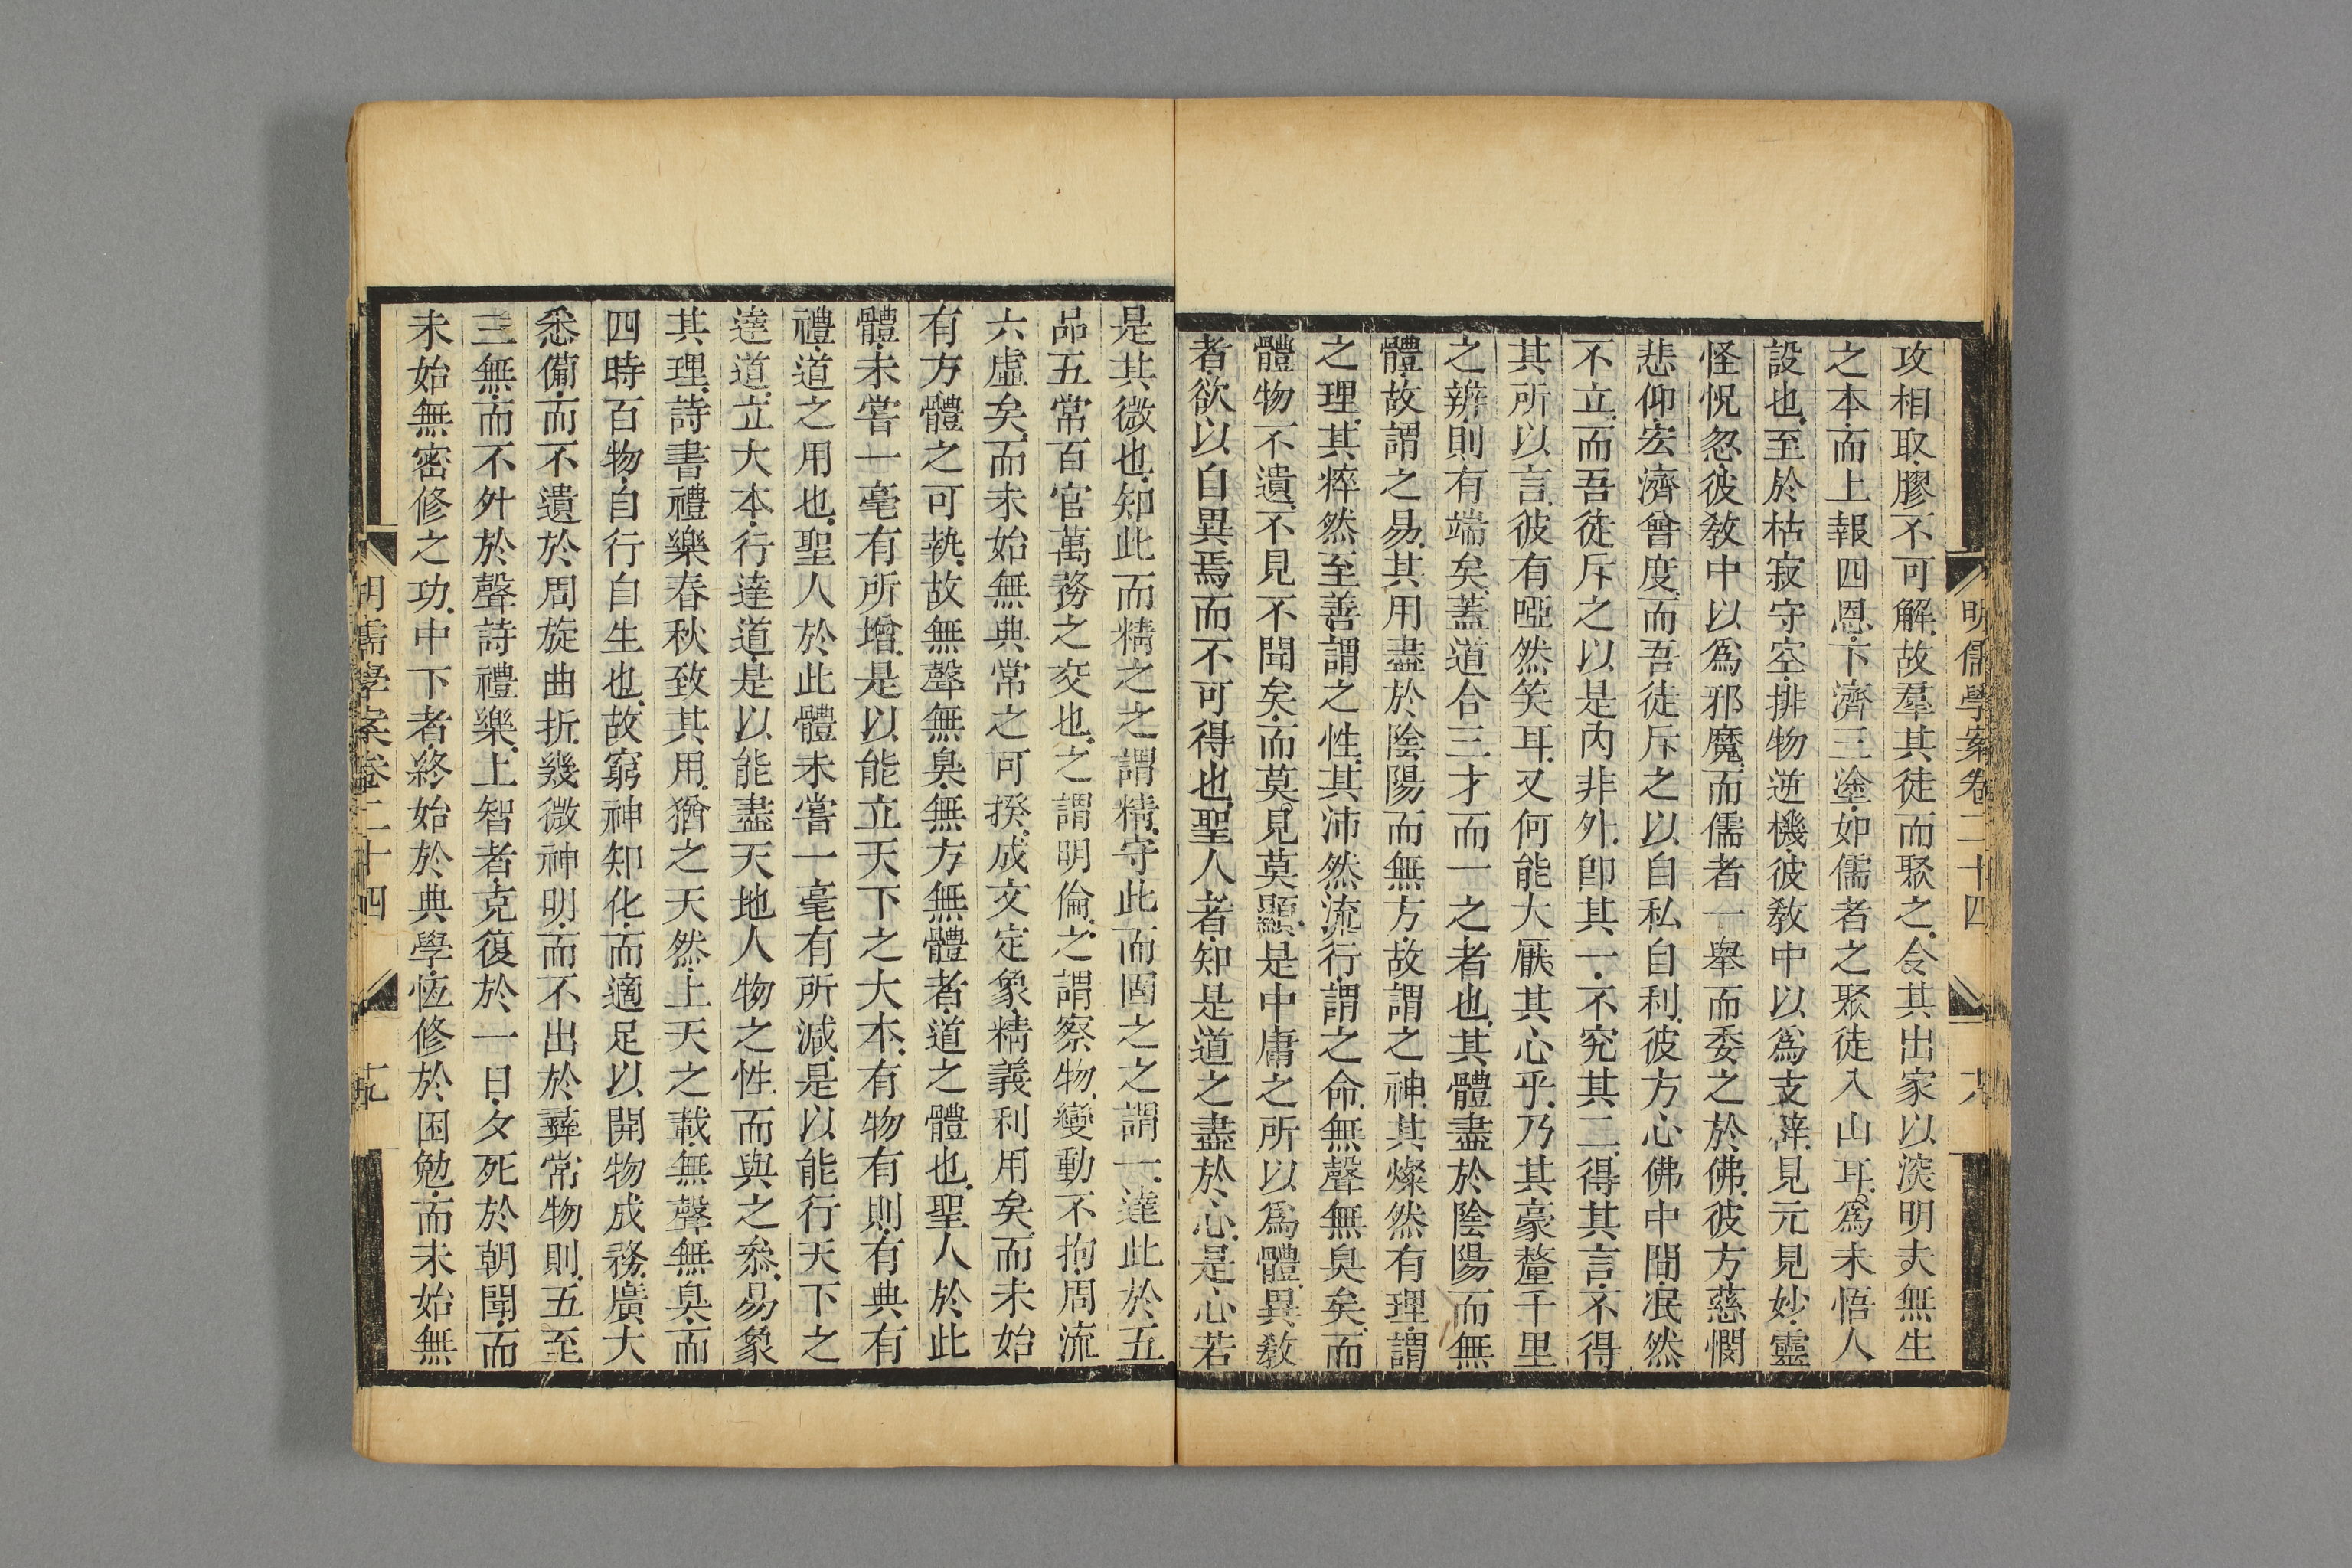 明儒學案卷二十四
攻相取膠不可解故羣其徒而聚之令其出家以深明夫無生
之本而上報四恩下濟三塗如儒者之聚徒入山耳爲未悟人
設也至於枯寂守空排物逆機彼敎中以爲支辟見元見妙靈
怪恍忽彼敎中以爲邪魔而儒者一舉而委之於佛彼方慈憫
悲仰宏濟曾度而吾徒斥之以自私自利彼方心佛中間泯然
不立而吾徒斥之以是內非外卽其一不究其二得其言不得
其所以言彼有啞然笑耳又何能大厭其心乎乃其豪釐千里
之辨則有端矣蓋道合三才而一之者也其體盡於陰陽而無
體故謂之易其用盡於陰陽而無方故謂之神其燦然有理謂
之理其粹然至善謂之性其沛然流行謂之命無聲無臭矣而
體物不遺不見不聞矣而莫見莫顯是中庸之所以爲體異敎
者欲以自異焉而不可得也聖人者知是道之盡於心是心若
是其微也知此而精之之謂精守此而固之之謂一達此於五
品五常百官萬務之交也之謂明倫之謂察物變動不拘周流
六虛矣而未始無典常之可揆成文定象精義利用矣而未始
有方體之可執故無聲無臭無方無體者道之體也聖人於此
體未嘗一毫有所增是以能立天下之大本有物有則有典有
禮道之用也聖人於此體未嘗一毫有所減是以能行天下之
達道立大本行達道是以能盡天地人物之性而與之叅易象
其理詩書禮樂春秋致其用猶之天然上天之載無聲無臭而
四時百物自行自生也故窮神知化而適足以開物成務廣大
悉備而不遺於周旋曲折幾微神明而不出於彝常物則五至
三無而不外於聲詩禮樂上智者克復於一日夕死於朝聞而
未始無密修之功中下者終始於典學恆修於困勉而未始無
明儒學案卷二十四